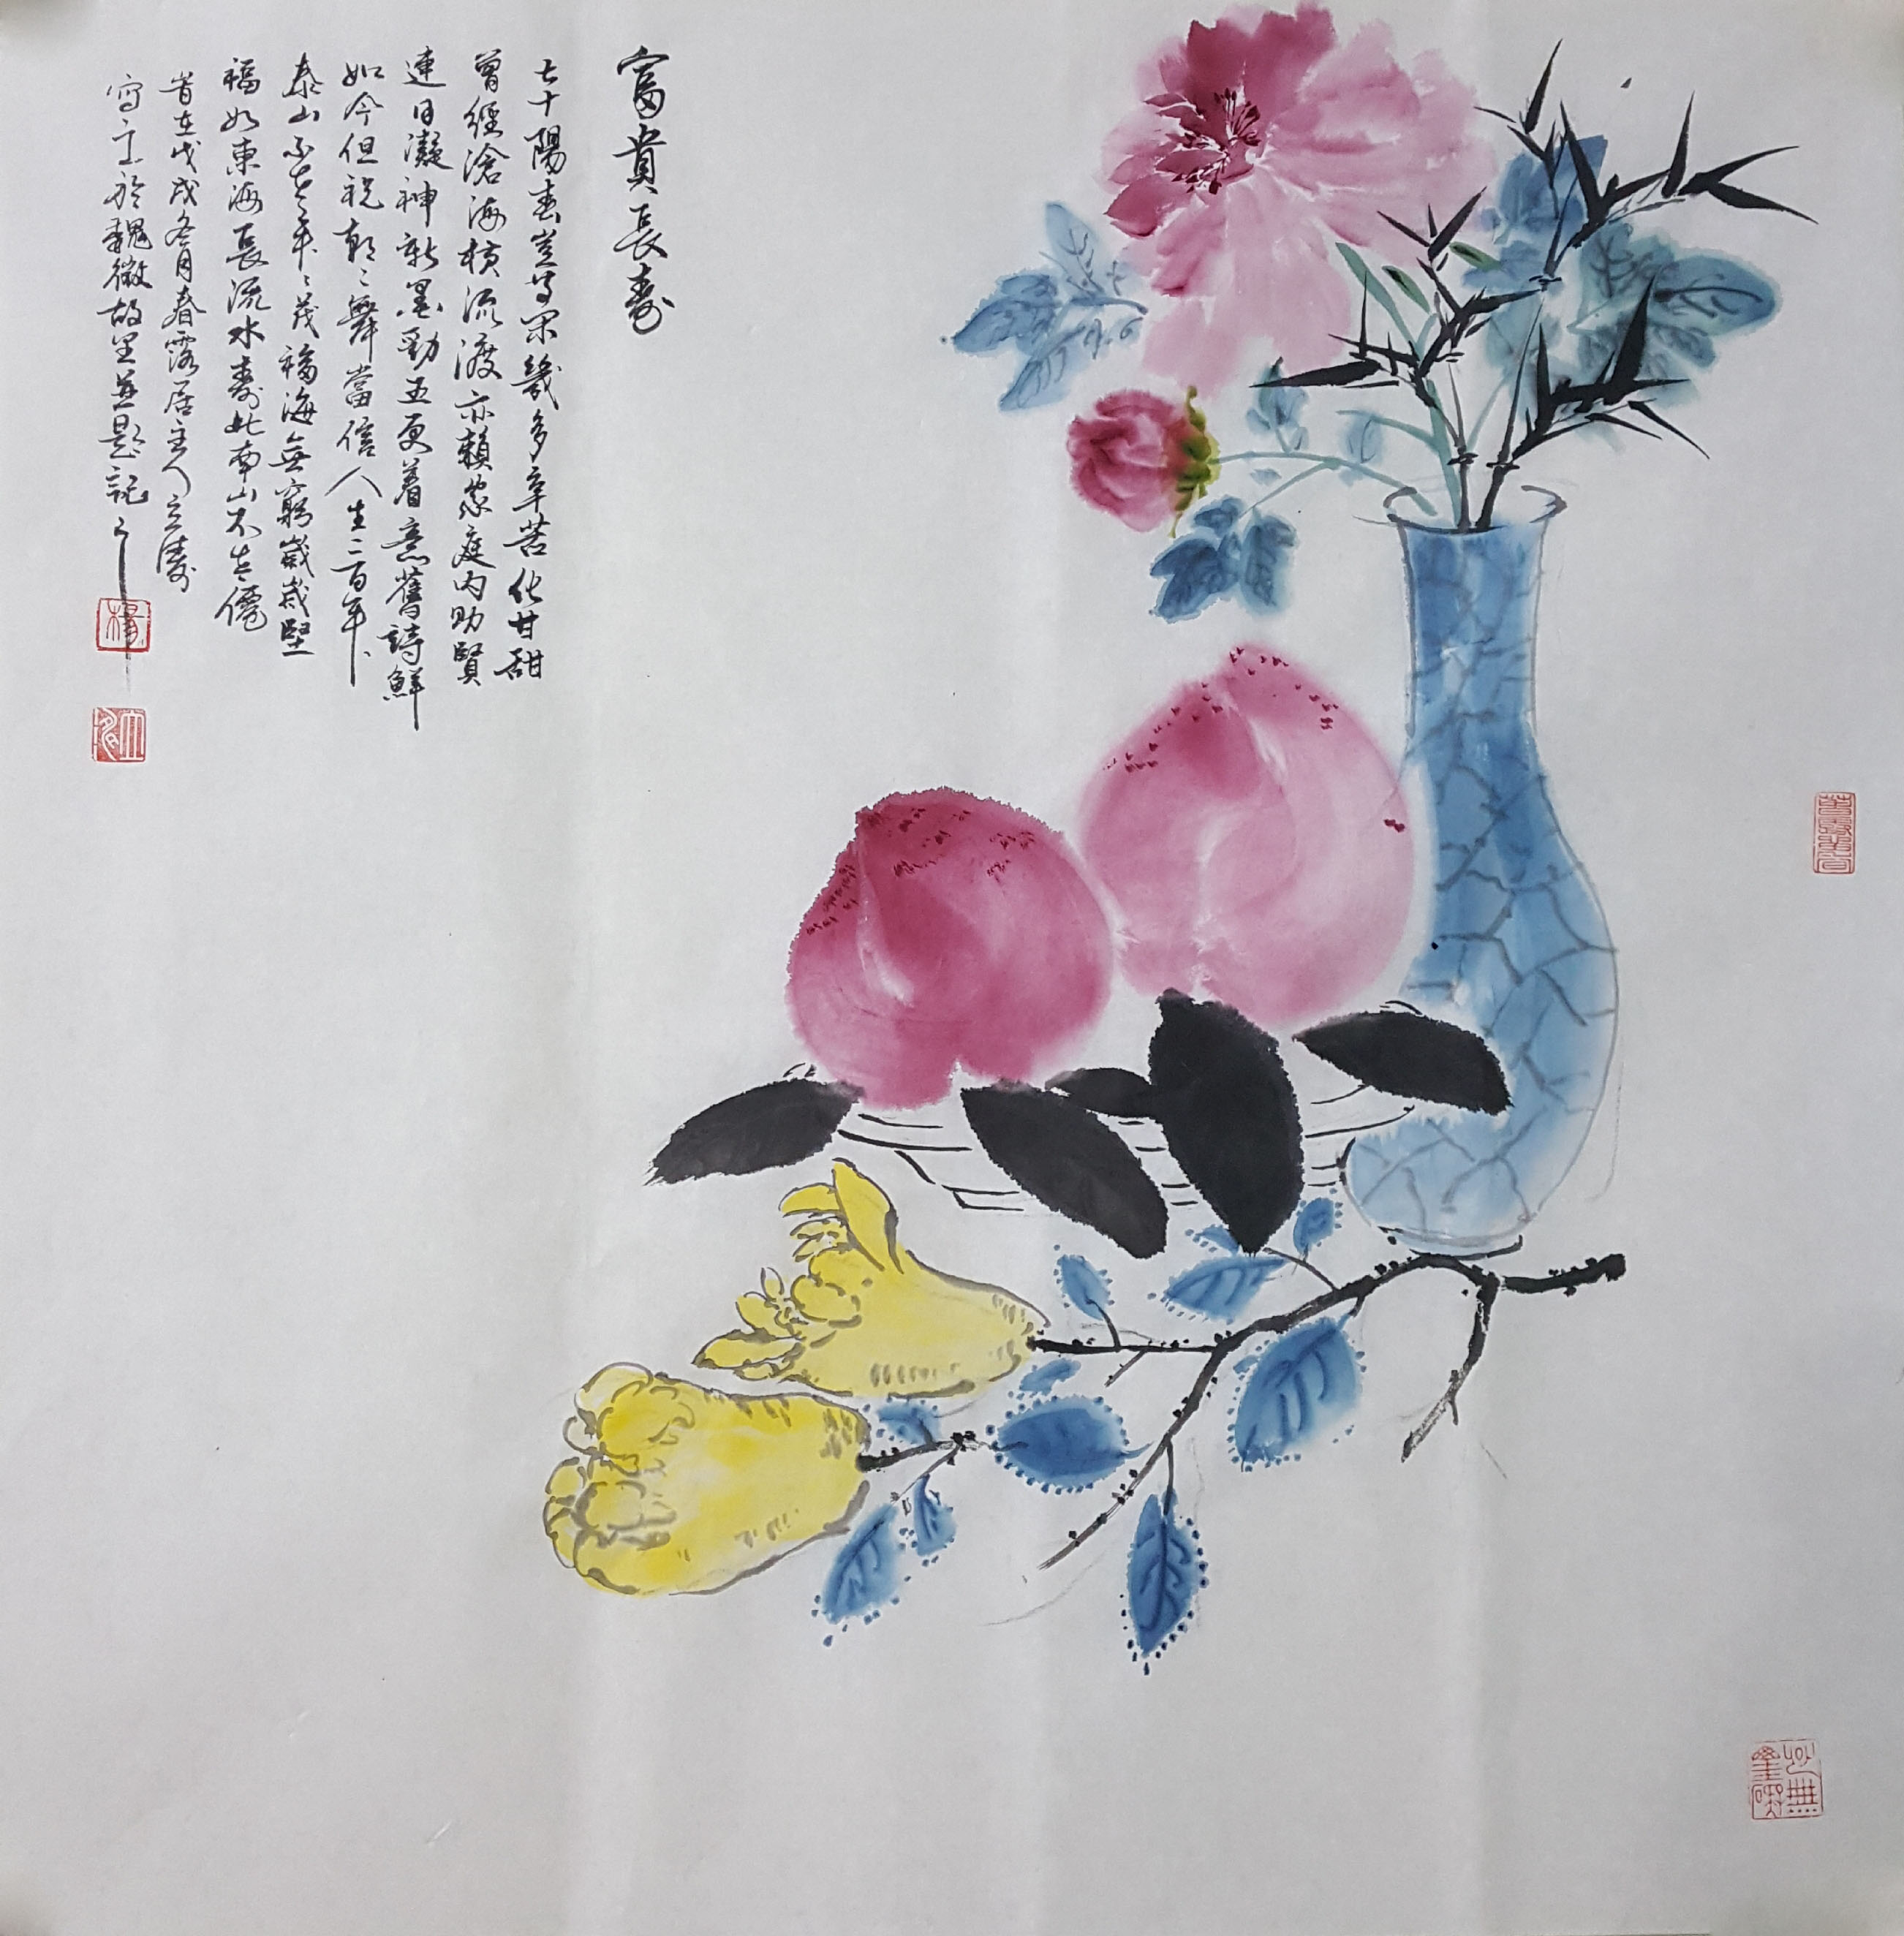 富貴長壽
七十陽春豈等閑幾多辛苦化甘甜
曾經滄海橫流渡亦賴家庭内助賢
連日凝神新墨勁五更着意舊詩鮮
如今但祝朝〻舞當信人生二百年
泰山不老年〻茂福海無窮歲歲堅
福如東海長流水壽比南山不老僊
皆在戊戌冬月春露居主人立濤
寫于於魏徵故里並題記之